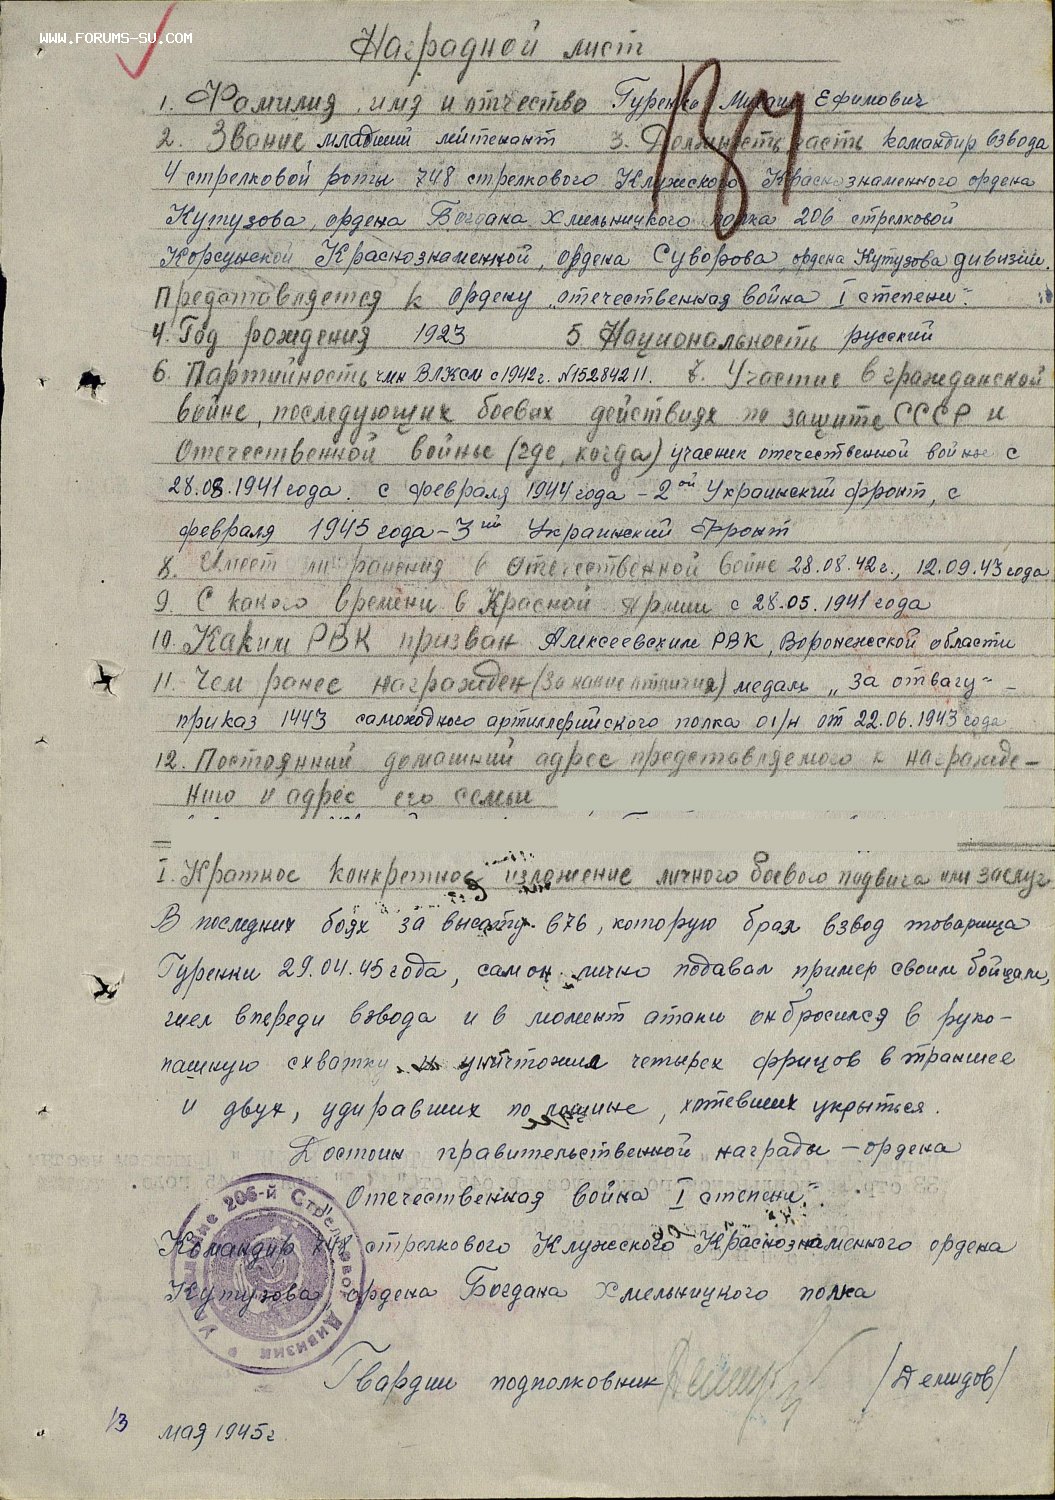 WWW.FORUMS-SU.COM
Наградной лист
1. Фамилия, имя и отчество Гуренко Михаил Ефимович
2. Звание младший лейтенант 3. Должность, часть командир взвода
4 стрелковой роты 748 стрелкового Клужского Краснознаменного ордена
Кутузова, ордена Богдана Хмельницкого полка 206 стрелковой
Корсунской Краснознаменной, ордена Суворова, ордена Кутузова дивизии.
Представляется к ордену „отечественная война I степени“.
4. Год рождения 1923 5 Национальность русский
6. Партийность член ВЛКСМ с 1942 г. №15284211. 7. Участие в гражданской
войне, последующих боевых действиях по защите СССР и
Отечественной войны (где, когда) учасник отечественной войны с
28.08.1941 года. с февраля 1944 года – 2ой Украинский фронт, с
февраля 1945 года – 3ий Украинский Фронт
8. Имеет ли ранения в Отечественной войне 28.08.42 г., 12.09.43 года
9. С какого времени в Красной Армии с 28.05.1941 года
10. Каким РВК призван Алексеевским РВК, Воронежской области
11. Чем ранее награжден (за какие отличия) медаль „За отвагу“ –
приказ 1443 самоходного артиллерийского полка 01/н от 22.06.1943 года
12. Постоянный домашний адрес представляемого к награжде–
нию и адрес его семьи
I. Краткое конкретное изложение личного боевого подвига или заслуг
В последних боях за высоту 676, которую брал взвод товарища
Гуренки 29.04.45 года, сам он лично подавал пример своим бойцам,
шел впереди взвода и в момент атаки он бросился в руко–
пашную схватку и уничтожил четырех фрицов в траншее
и двух, удиравших по лощине, хотевших укрыться.
Достоин правительственной награды – ордена
„Отечественная война I степени“.
Командир 748 стрелкового Клужского Краснознаменного ордена
Кутузова, ордена Богдана Хмельницкого полка
Гвардии подполковник /Демидов/
13 мая 1945 г.
206-й Стрелковой Дивизии